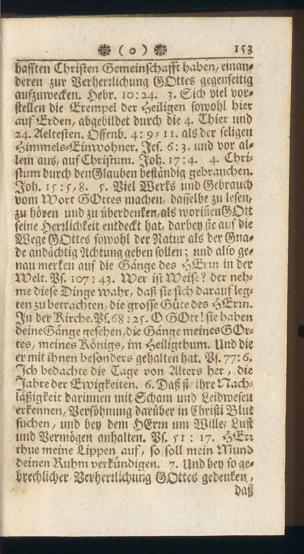 ❀ ( o ) ❀ 153
hafften Christen Gemeinschafft haben, einan-
deren zur Verherrlichung GOttes gegenseitig
aufzuwecken. Hebr. 10:24. 3. Sich viel vor-
stellen die Exempel der Heiligen sowohl hier
auf Erden, abgebildet durch die 4. Thier und
24. Aeltesten. Offenb. 4:9-11. als der seligen
Himmels-Einwohner. Jes. 6:3. und vor al-
lem aus, auf Christum. Joh. 17:4. 4. Chri-
stum durch den Glauben beständig gebrauchen.
Joh. 15:5,8. 5. Viel Wercks und Gebrauch
vom Wort GOttes machen, dasselbe zu lesen,
zu hören und zu überdencken, als worinen GOtt
seine Herrlichkeit entdeckt hat, darbey sie auf die
Wege GOttes sowohl der Natur als der Gna-
de andächtig Achtung geben sollen; und also ge-
nau mercken auf die Gänge des HErrn in der
Welt. Ps. 107:43. Wer ist Weise? der neh-
me diese Dinge wahr, daß sie sich darauf leg-
ten zu betrachten, die grosse Güte des HErrn.
In der Kirche. Ps. 68:25. O GOtt! sie haben
deine Gänge gesehen, die Gänge meines GOt-
tes, meines Königs, im Heiligthum. Und die
er mit ihnen besonders gehalten hat. Ps. 77:6.
Ich bedachte die Tage von Alters her, die
Jahre der Ewigkeiten. 6. Daß sie ihre Nach-
läßigkeit darinnen mit Scham und Leidwesen
erkennen, Versöhnung darüber in Christi Blut
suchen, und bey dem HErrn um Wille, Lust
und Vermögen anhalten. Ps. 51:17. HErr
thue meine Lippen auf, so soll mein Mund
deinen Ruhm verkündigen. 7. Und bey so ge-
brechlicher Verherrlichung GOttes gedenken,
daß